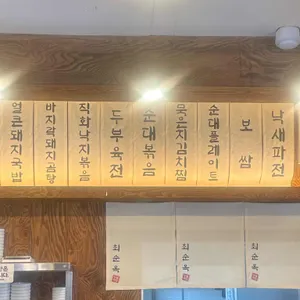 얼큰돼지국밥
바지락돼지곰탕
직화낙지볶음
두부육전
순대볶음
묵은지김치찜
순대플레이트
보쌈
낙새파전
최순옥
최순옥
최순옥